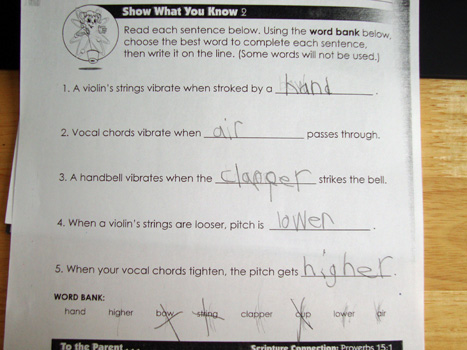 Show What You Know 2
Read each sentence below. Using the word bank below,
choose the best word to complete each sentence,
then write it on the line. (Some words will not be used.)
1. A violin's strings vibrate when stroked by a hand.
2. Vocal chords vibrate when air passes through.
3. A handbell vibrates when the clapper strikes the bell.
4. When a violin's strings are looser, pitch is lower.
5. When your vocal chords tighten, the pitch gets higher.
WORD BANK:
hand higher bow string clapper cup lower air
To the Parent . . . Scripture Connection: Proverbs 15:1